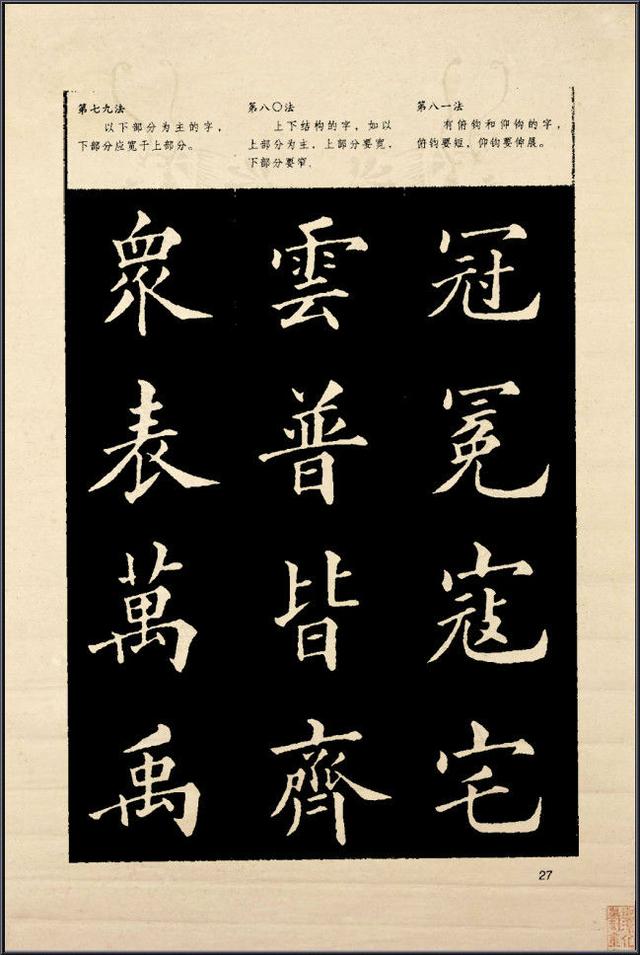 第七九法
以下部分为主的字，
下部分应宽于上部分。
第八〇法
上下结构的字，如以
上部分为主，上部分要宽，
下部分要窄。
第八一法
有俯钩和仰钩的字，
俯钩要短，仰钩要伸展。
眾
表
萬
禹
雲
普
皆
齊
冠
冕
寇
宅
27